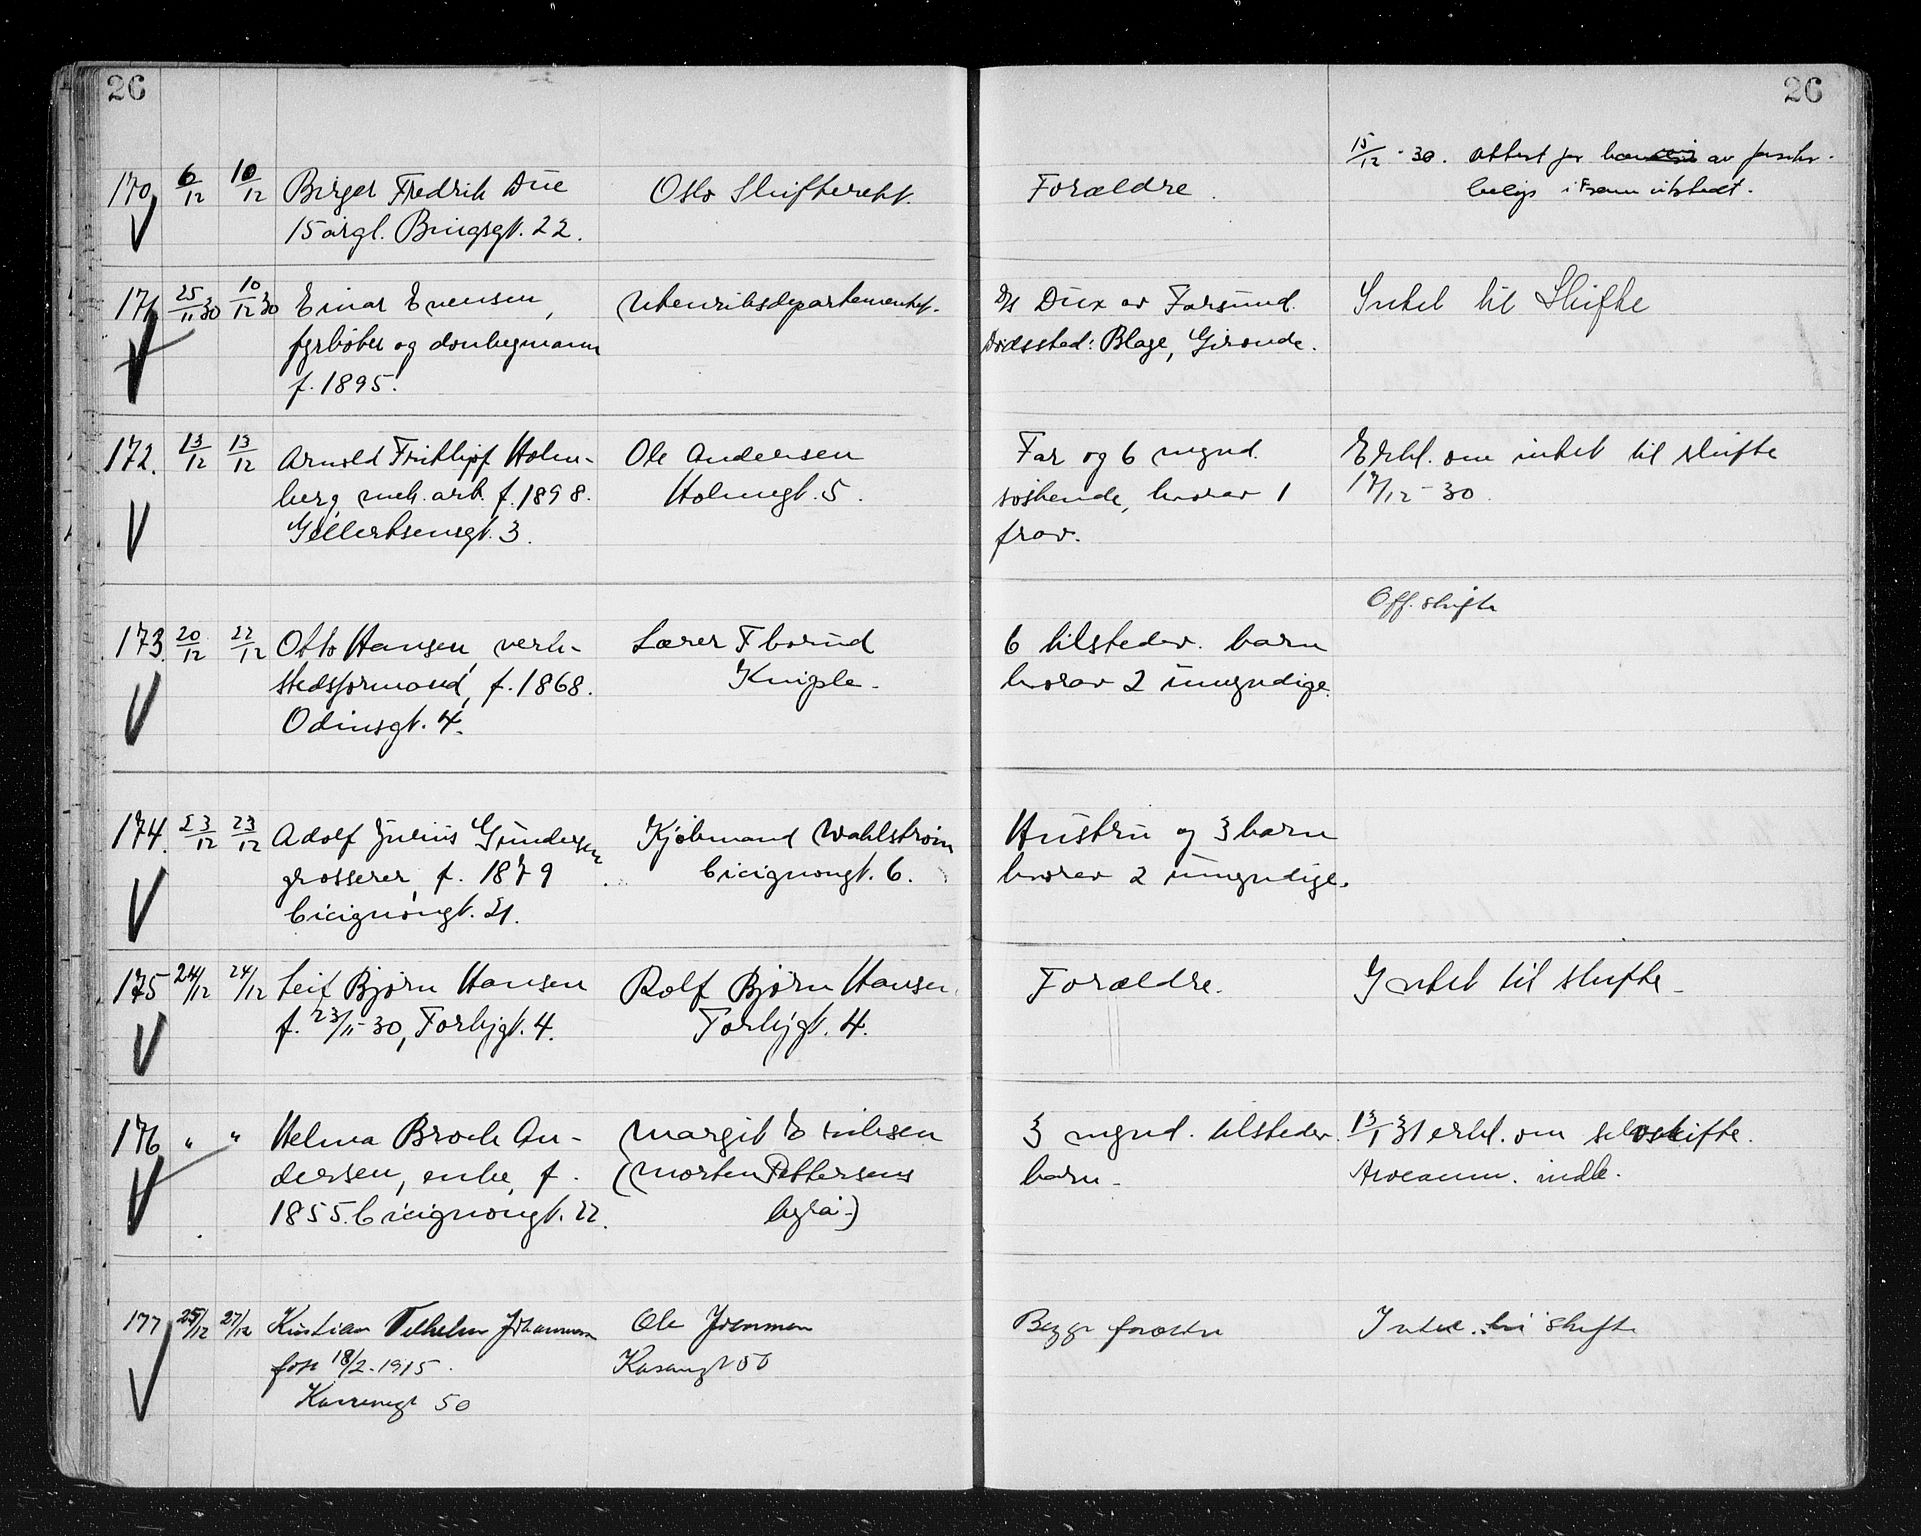 26
26
170 6/12 10/12 Birger Fredrik Due Oslo Skifterett. Forældre. 15/12 - 30. Attest for av forsikr.
15 årgl. Bingsgt. 22. belöp i Fram utstedt.
171 25/11 30 10/12 30 Einar Evensen, Utenriksdepartementet. D/s Dux av Farsund. Intet til Skifte
fyrböter og donkeymann Dødssted: Blage, Gironde.
f. 1895.
172. 13/12 13/12 Arnold Frithjof Holm- Ole Andersen Far og 6 mynd. Erkl. om intet til skifte
berg, mek. arb. f. 1898. Holmegt. 5. søskende, hvorav 1 17/12 - 30.
Gellertsensgt. 3. frav.
Off. skifte
173. 20/12 22/12 Otto Hansen, verk- Lærer Thorud 6 tilstedev. barn
stedsformand, f. 1868. Kniple. hvorav 2 umyndige.
Odinsgt. 4.
174. 23/12 23/12 Adolf Julius Gundersen Kjøbmand Wahlstrøm Hustru og 3 barn
grosserer, f. 1879 Cicignongt. 6. hvorav 2 umyndige.
Cicignongt. 21.
175 24/12 24/12 Leif Bjørn Hansen Rolf Bjørn Hansen. Forældre. Intet til skifte.
f. 23/11 - 30, Torhjgt. 4. Torhjgt. 4.
176 " " Helma Brock An- Margit Eriksen 3 mynd. tilstedev. 13/1 31 erkl. om selvskifte.
dersen, enke, f. (Morten Pettersens barn. Arveanm. indk.
1855. Cicignongt. 22. byrå.)
177 25/12 27/12 Kristian Vilhelm Johannesen Ole Begge forældre Intet til skifte
født 18/2 - 1915. 50
50